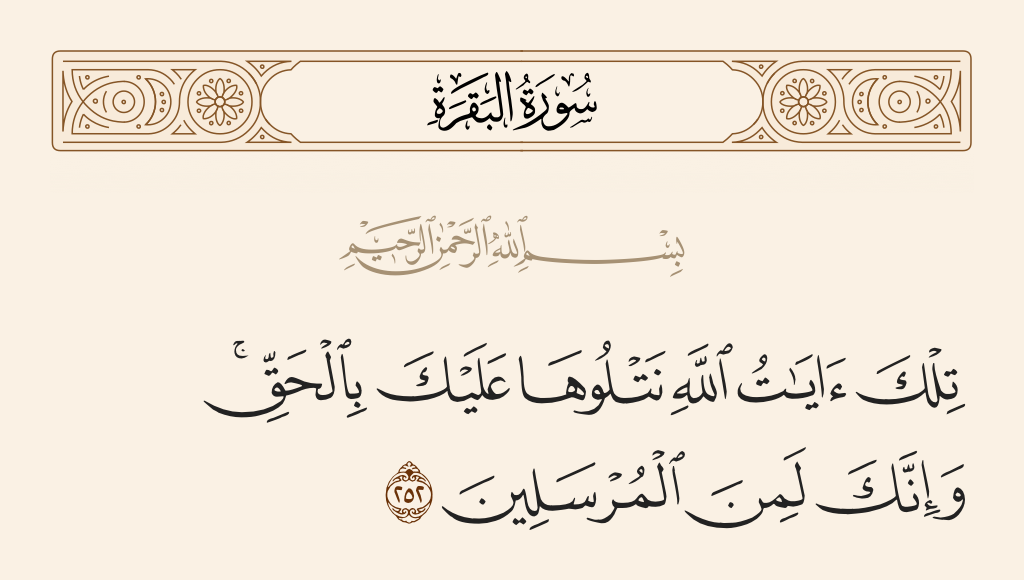 سُورَةُ البَقَرَةِ
بِسْمِ ٱللَّهِ ٱلرَّحْمَٰنِ ٱلرَّحِيمِ
تِلْكَ ءَايَـٰتُ ٱللَّهِ نَتْلُوهَا عَلَيْكَ بِٱلْحَقِّ ۚ
وَإِنَّكَ لَمِنَ ٱلْمُرْسَلِينَ ٢٥٢